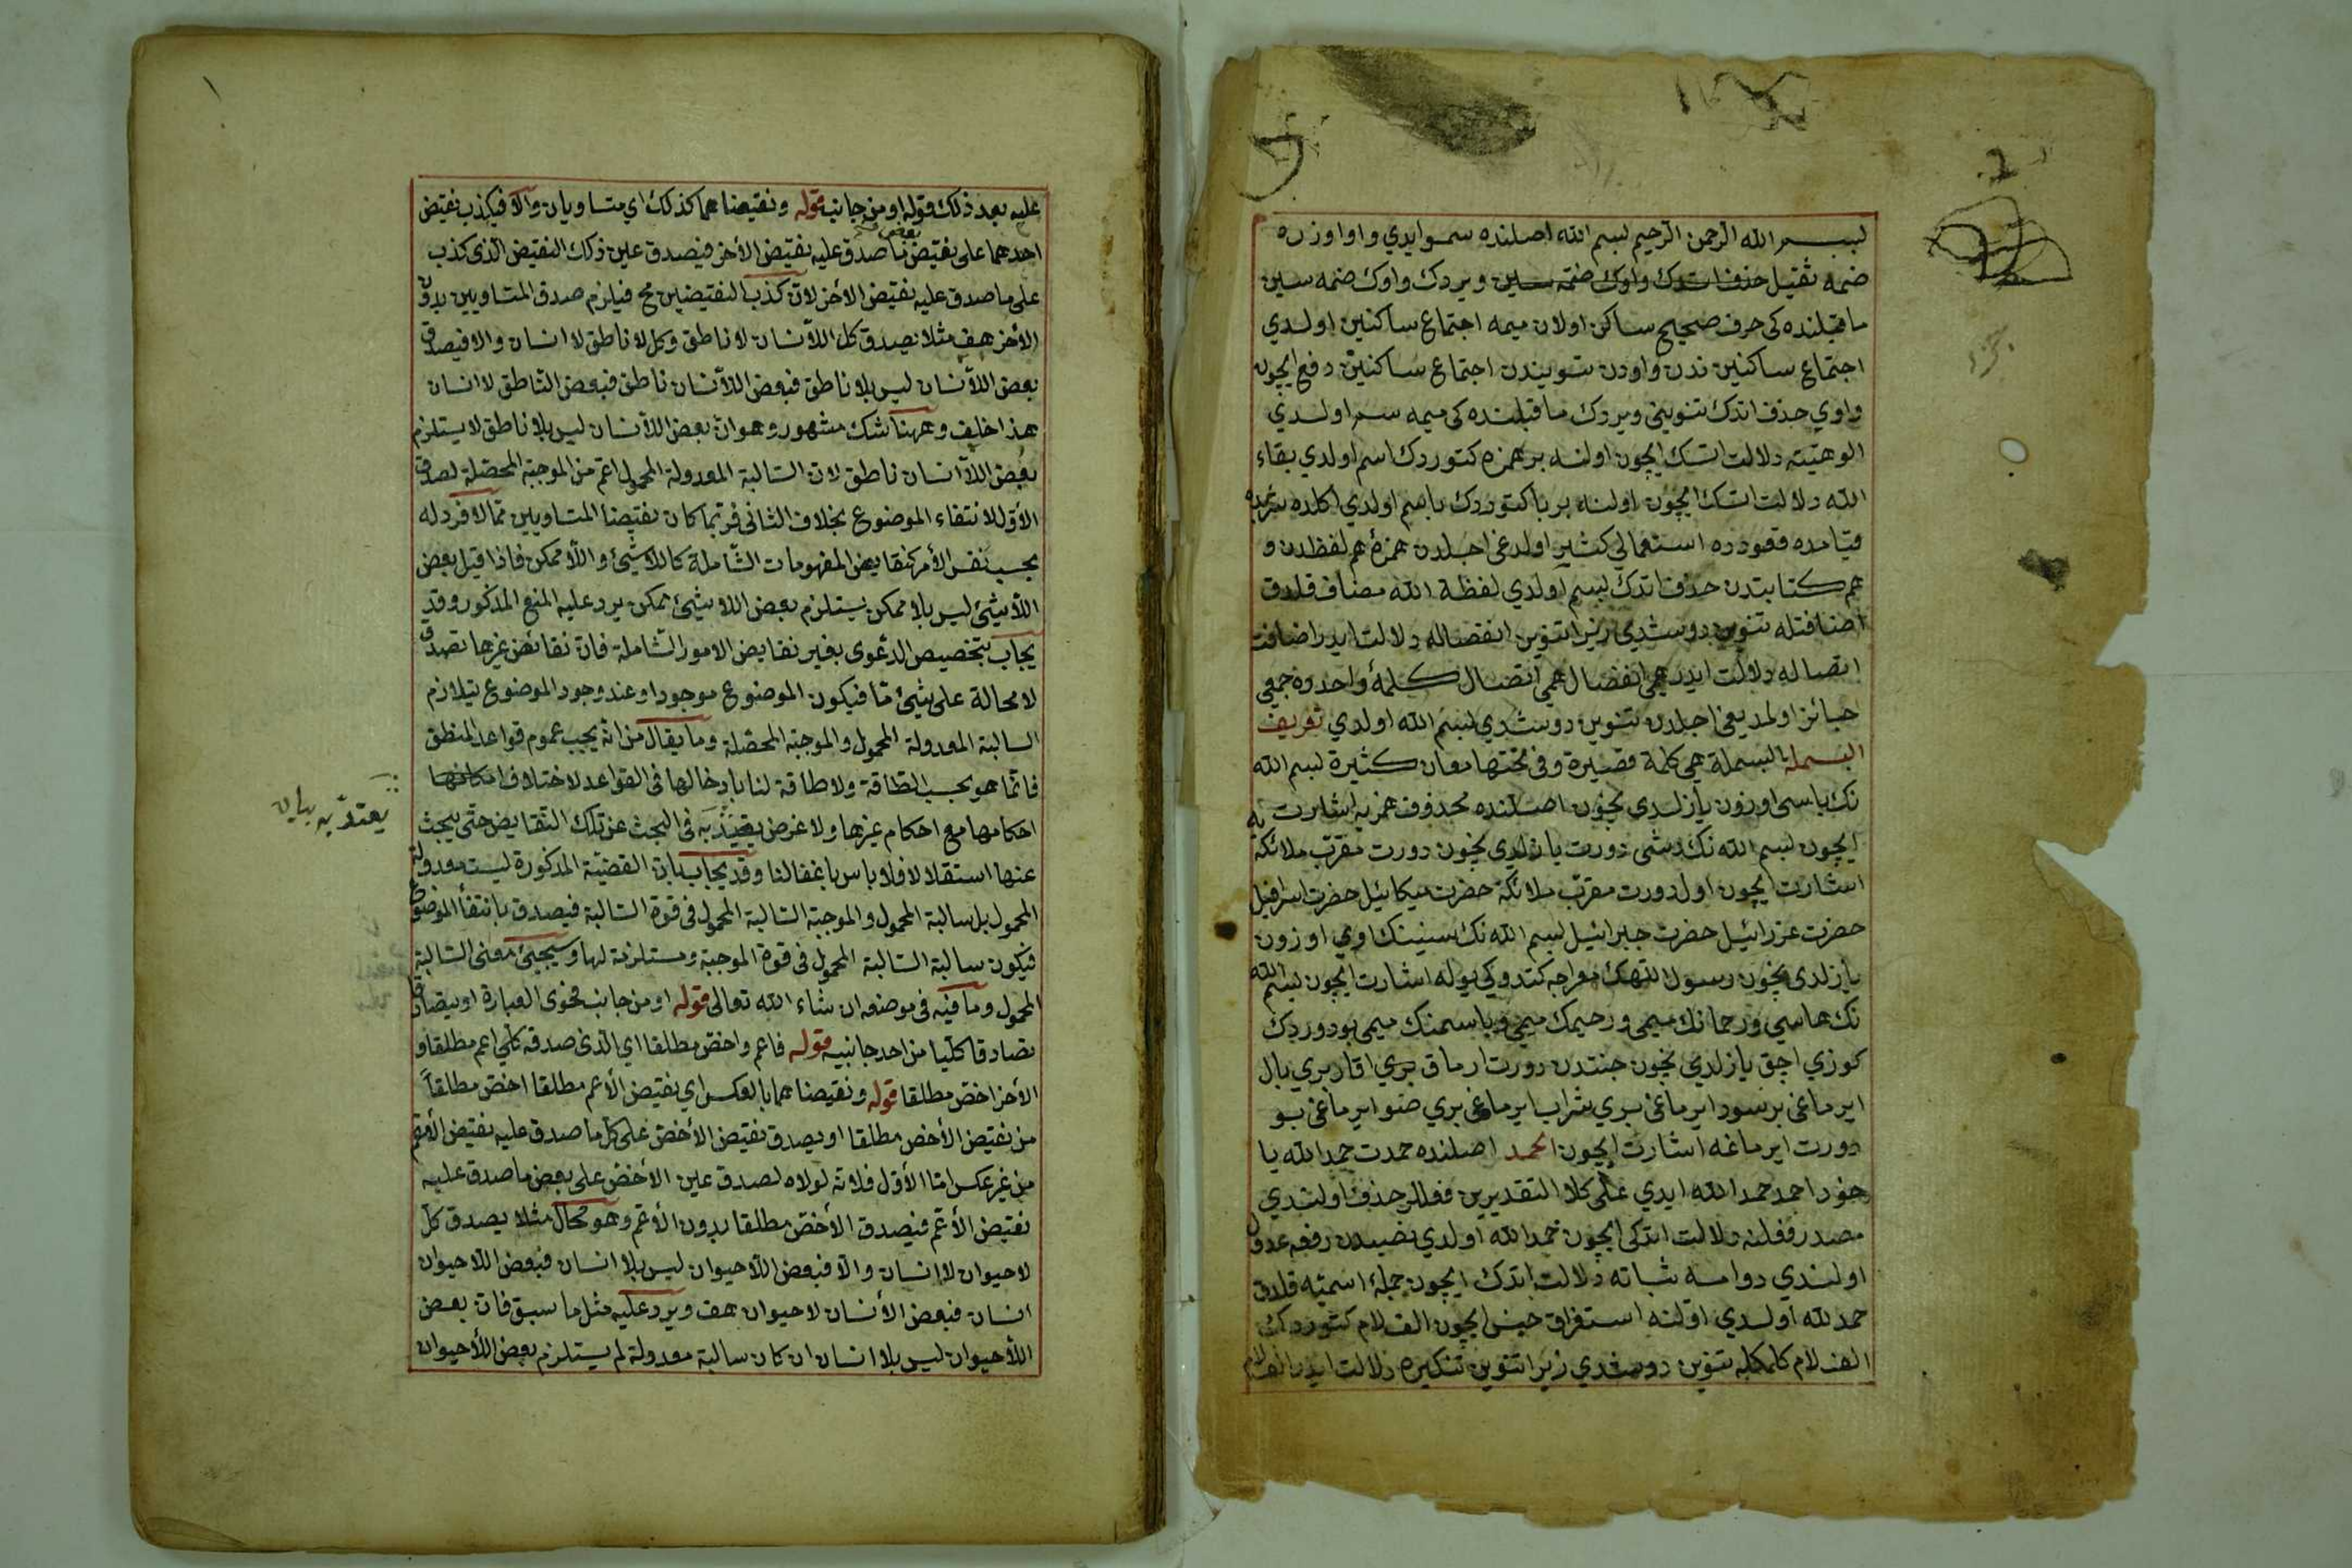 بسم الله الرحمن الرحيم بسم الله اصلنده سموايدي واو اوزره
ضمه ثقيل حذف اتدك واوك ضمه سين ويردك واوك ضمه سين
ما قبلنده كى حرف صحيح ساكن اولان ميمه اجتماع ساكنين اولدي
اجتماع ساكنين ندن واودن تنويندن اجتماع ساكنين دفع ايچون
واوي حذف اتدك تنويني ويردك ما قبلنده كى ميمه سم اولدي
الوهيته دلالت اتسك ايچون اولنه بر همزه كتوردك اسم اولدي بقاء
الله دلالت اتسك ايچون اولنه بر با كتوردك باسم اولدي اكلده شربده
قيامده قعودده استعمالي كثير اولدغى اجلدن همزۀ هم لفظدن و
هم كتابتدن حذف اتدك بسم اولدي لفظة الله مضاف قلدق
اضافتله تنوين دوشدي زيرا تنوين انفصاله دلالت ايدر اضافت
اتصاله دلالت ايدر همى انفصال همى اتصال كلمۀ واحدده جمعى
جائز اولمديغى اجلدن تنوين دوشدي بسم الله اولدي تعريف
البسملة البسملة هي كلمة قصيرة وفي تحتها معان كثيرة بسم الله
نك باسى اوزون يازلدي نچون اصلنده محذوف همزيه اشارت
ايچون بسم الله نك دشى دورت يازلدي نچون دورت مقرب ملائكه يه
اشارت ايچون اول دورت مقرب ملائكه حضرت ميكائيل حضرت اسرافيل
حضرت عزرائيل حضرت جبرائيل بسم الله نك سنينك اوي اوزون
يازلدى نچون رسول اللهك معراجه كتدوكى يوله اشارت ايچون بسم الله
نك هاسي ورحمانك ميمى ورحيمك ميمى وباسمنك ميمى بو دوردك
كوزي اچق يازلدي نچون جنتدن دورت ارماق بري اقار بري بال
ايرماغى بر سود ايرماغى بري شراب ايرماغى بري صو ايرماغى بو
دورت ايرماغه اشارت ايچون الحمد اصلنده حمدت حمد الله يا
خود احمد حمد الله ايدي على كلا التقديرين فعللر حذف اولندي
مصدر فعلنه دلالت اتدكى ايچون حمد الله اولدي نصبدن رفعه عدول
اولندي دوامه ثباته دلالت اتدك ايچون جملۀ اسميه قلدق
حمد لله اولدي اولنه استغراق جنس ايچون الف لام كتوردك
الف لام كلمكله تنوين دوشدي زيرا تنوين تنكيره دلالت ايدر الف لام
عليه بعد ذلك قوله او من جانب قوله ونقيضاهما كذلك اي متساويان والا فيكذب نقيض
احدهما على بعض ما صدق عليه نقيض الأخر فيصدق عين ذلك النقيض الذى كذب
على ما صدق عليه نقيض الاخر لان كذب النقيضين مح فيلزم صدق المتساويين بدون
الأخر هف مثلا يصدق كل اللاانسان لا ناطق وكل لا ناطق لا انسان والا فيصدق
بعض اللاانسان ليس بلا ناطق فبعض اللاانسان ناطق فبعض الناطق لا انسان
هذا خلف وههنا شك مشهور وهو ان بعض اللاانسان ليس بلا ناطق لا يستلزم
بعض اللاانسان ناطق لان السالبة المعدولة المحمول اعم من الموجبة المحصلة لصدق
الأول لانتفاء الموضوع بخلاف الثانى فربما كان نقيضا المتساويين مما لا فرد له
بحسب نفس الأمر كنقايض المفهومات الشاملة كاللاشيئ واللاممكن فاذا قيل بعض
اللاشيئ ليس بلا ممكن يستلزم بعض اللاشيئ ممكن يرد عليه المنع المذكور وقد
يجاب بتخصيص الدعوى بغير نقايض الامور الشاملة فان نقائض غيرها تصدق
لا محالة على شيئ ما فيكون الموضوع موجودا وعند وجود الموضوع يتلازم
السالبة المعدولة المحمول والموجبة المحصلة وما يقال من انه يجب عموم قواعد المنطق
فانما هو بحسب الطاقة ولا طاقة لنا بادخالها فى القواعد لاختلاف
احكامها مع احكام غيرها ولا غرض يعتد به فى البحث عن تلك النقايض حتى يبحث
يعتد به بيان
عنها استقلالا فلا باس باغفالنا وقد يجاب بان القضية المذكورة ليست معدولة
المحمول بل سالبة المحمول والموجبة السالبة المحمول فى قوة السالبة فيصدق بانتفأ الموضوع
فيكون سالبة السالبة المحمول فى قوة الموجبة ومستلزمة لها وسيجيئ معنى السالبة
المحمول وما فيه فى موضعه ان شاء الله تعالى قوله او من جانب فحوى العبارة او يتصادقا
تصادقا كليا من احد جانبيه قوله فاعم واخص مطلقا اي الذى صدقه كلي اعم مطلقا و
الأخر اخص مطلقا قوله ونقيضاهما بالعكس اي نقيض الأعم مطلقا اخص مطلقاً
من نقيض الأخص مطلقا او يصدق نقيض الاخص على كل ما صدق عليه نقيض الأعم
من غير عكس اما الأول فلانه لولاه لصدق عين الأخص على بعض ما صدق عليه
نقيض الأعم فيصدق الأخص مطلقا بدون الأعم وهو محال مثلا يصدق كل
لا حيوان لا انسان والا فبعض اللاحيوان ليس بلا انسان فبعض اللاحيوان
انسان فبعض الأنسان لا حيوان هف ويرد عليه مثل ما سبق فان بعض
اللاحيوان ليس بلا انسان ان كان سالبة معدولة لم يستلزم بعض اللاحيوان